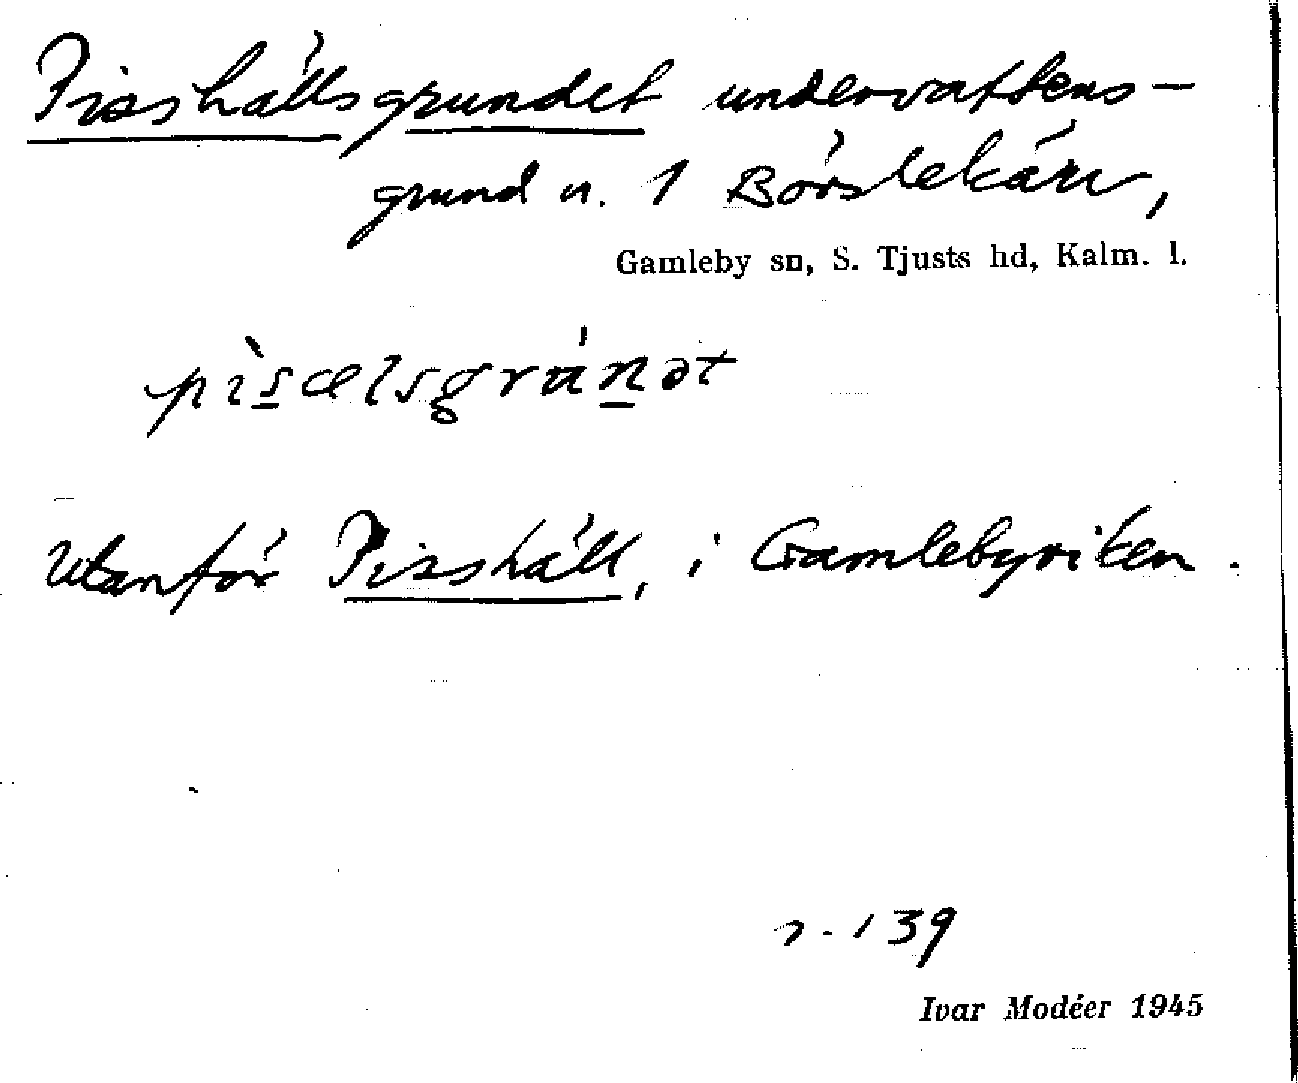 Pisshällsgrundet undervattens-
grund n. 1 Börstekärr,
Gamleby sn, S. Tjusts hd, Kalm. l.
pìsælsgrúnət
Utanför Pisshäll, i Gamlebyviken.
n. 139
Ivar Modéer 1945